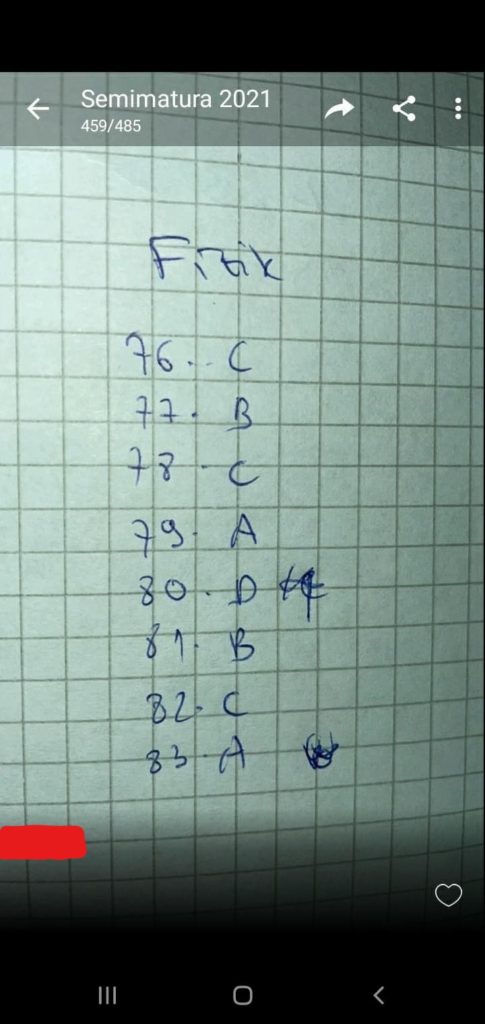 Semimatura 2021
459/485
Fizik
76. C
77. B
78. C
79. A
80. D
81. B
82. C
83. A